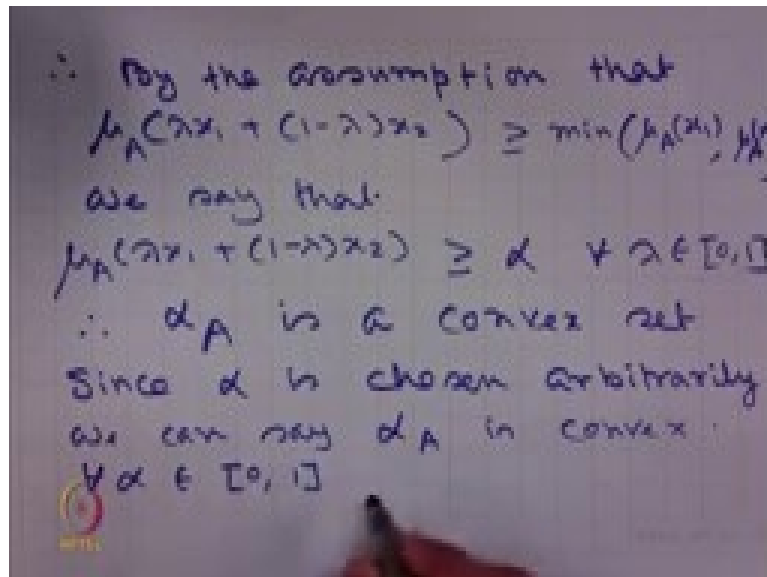 ∴ By the assumption that
μ_A(λx₁ + (1-λ)x₂) ≥ min(μ_A(x₁), μ_A(
we say that
μ_A(λx₁ + (1-λ)x₂) ≥ α ∀ λ ∈ [0, 1]
∴ α_A is a convex set
Since α is chosen arbitrarily
we can say α_A is convex.
∀ α ∈ [0, 1]
NPTEL